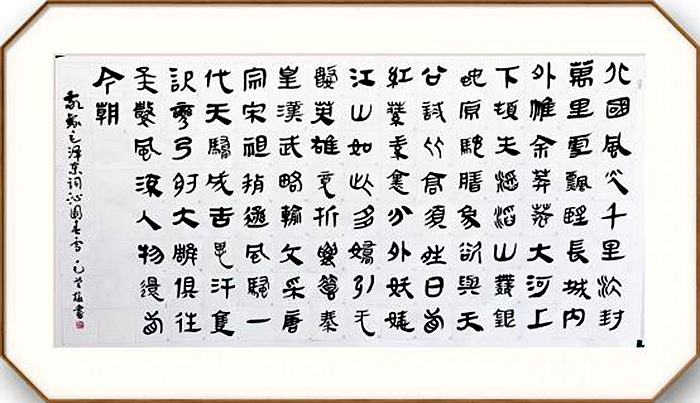 北國風光千里冰封
萬里雪飄望長城内
外惟余莽莽大河上
下頓失滔滔山舞銀
蛇原馳臘象欲與天
公試比高須晴日看
紅裝素裹分外妖嬈
江山如此多嬌引无
數英雄竞折腰惜秦
皇漢武略輸文采唐
宗宋祖稍遜風騷一
代天驕成吉思汗隻
識彎弓射大雕俱往
矣數風流人物還看
今朝
敬錄毛澤東詞沁園春雪 書